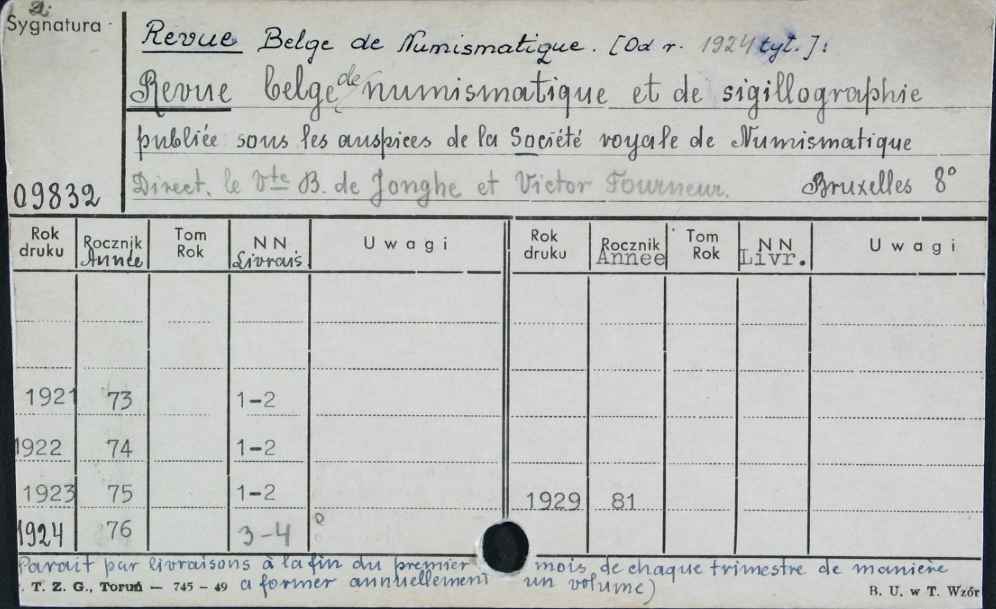 D.
Sygnatura
Revue Belge de Numismatique. [Od r. 1924 tyt.]:
Revue belge de numismatique et de sigillographie
publiée sous les auspices de la Société royale de Numismatique
09832 Direct. le Vte B. de Jonghe et Victor Tourneur. Bruxelles 8°
Rok druku Rocznik Année Tom Rok NN Livrais Uwagi Rok druku Rocznik Annee Tom Rok NN Livr. Uwagi
1921 73 1-2
1922 74 1-2
1923 75 1-2 1929 81
1924 76 3-4
Parait par livraisons à la fin du premier mois de chaque trimestre de manière
a former annuellement un volume)
T. Z. G., Toruń — 745 - 49 B. U. w T. Wzór